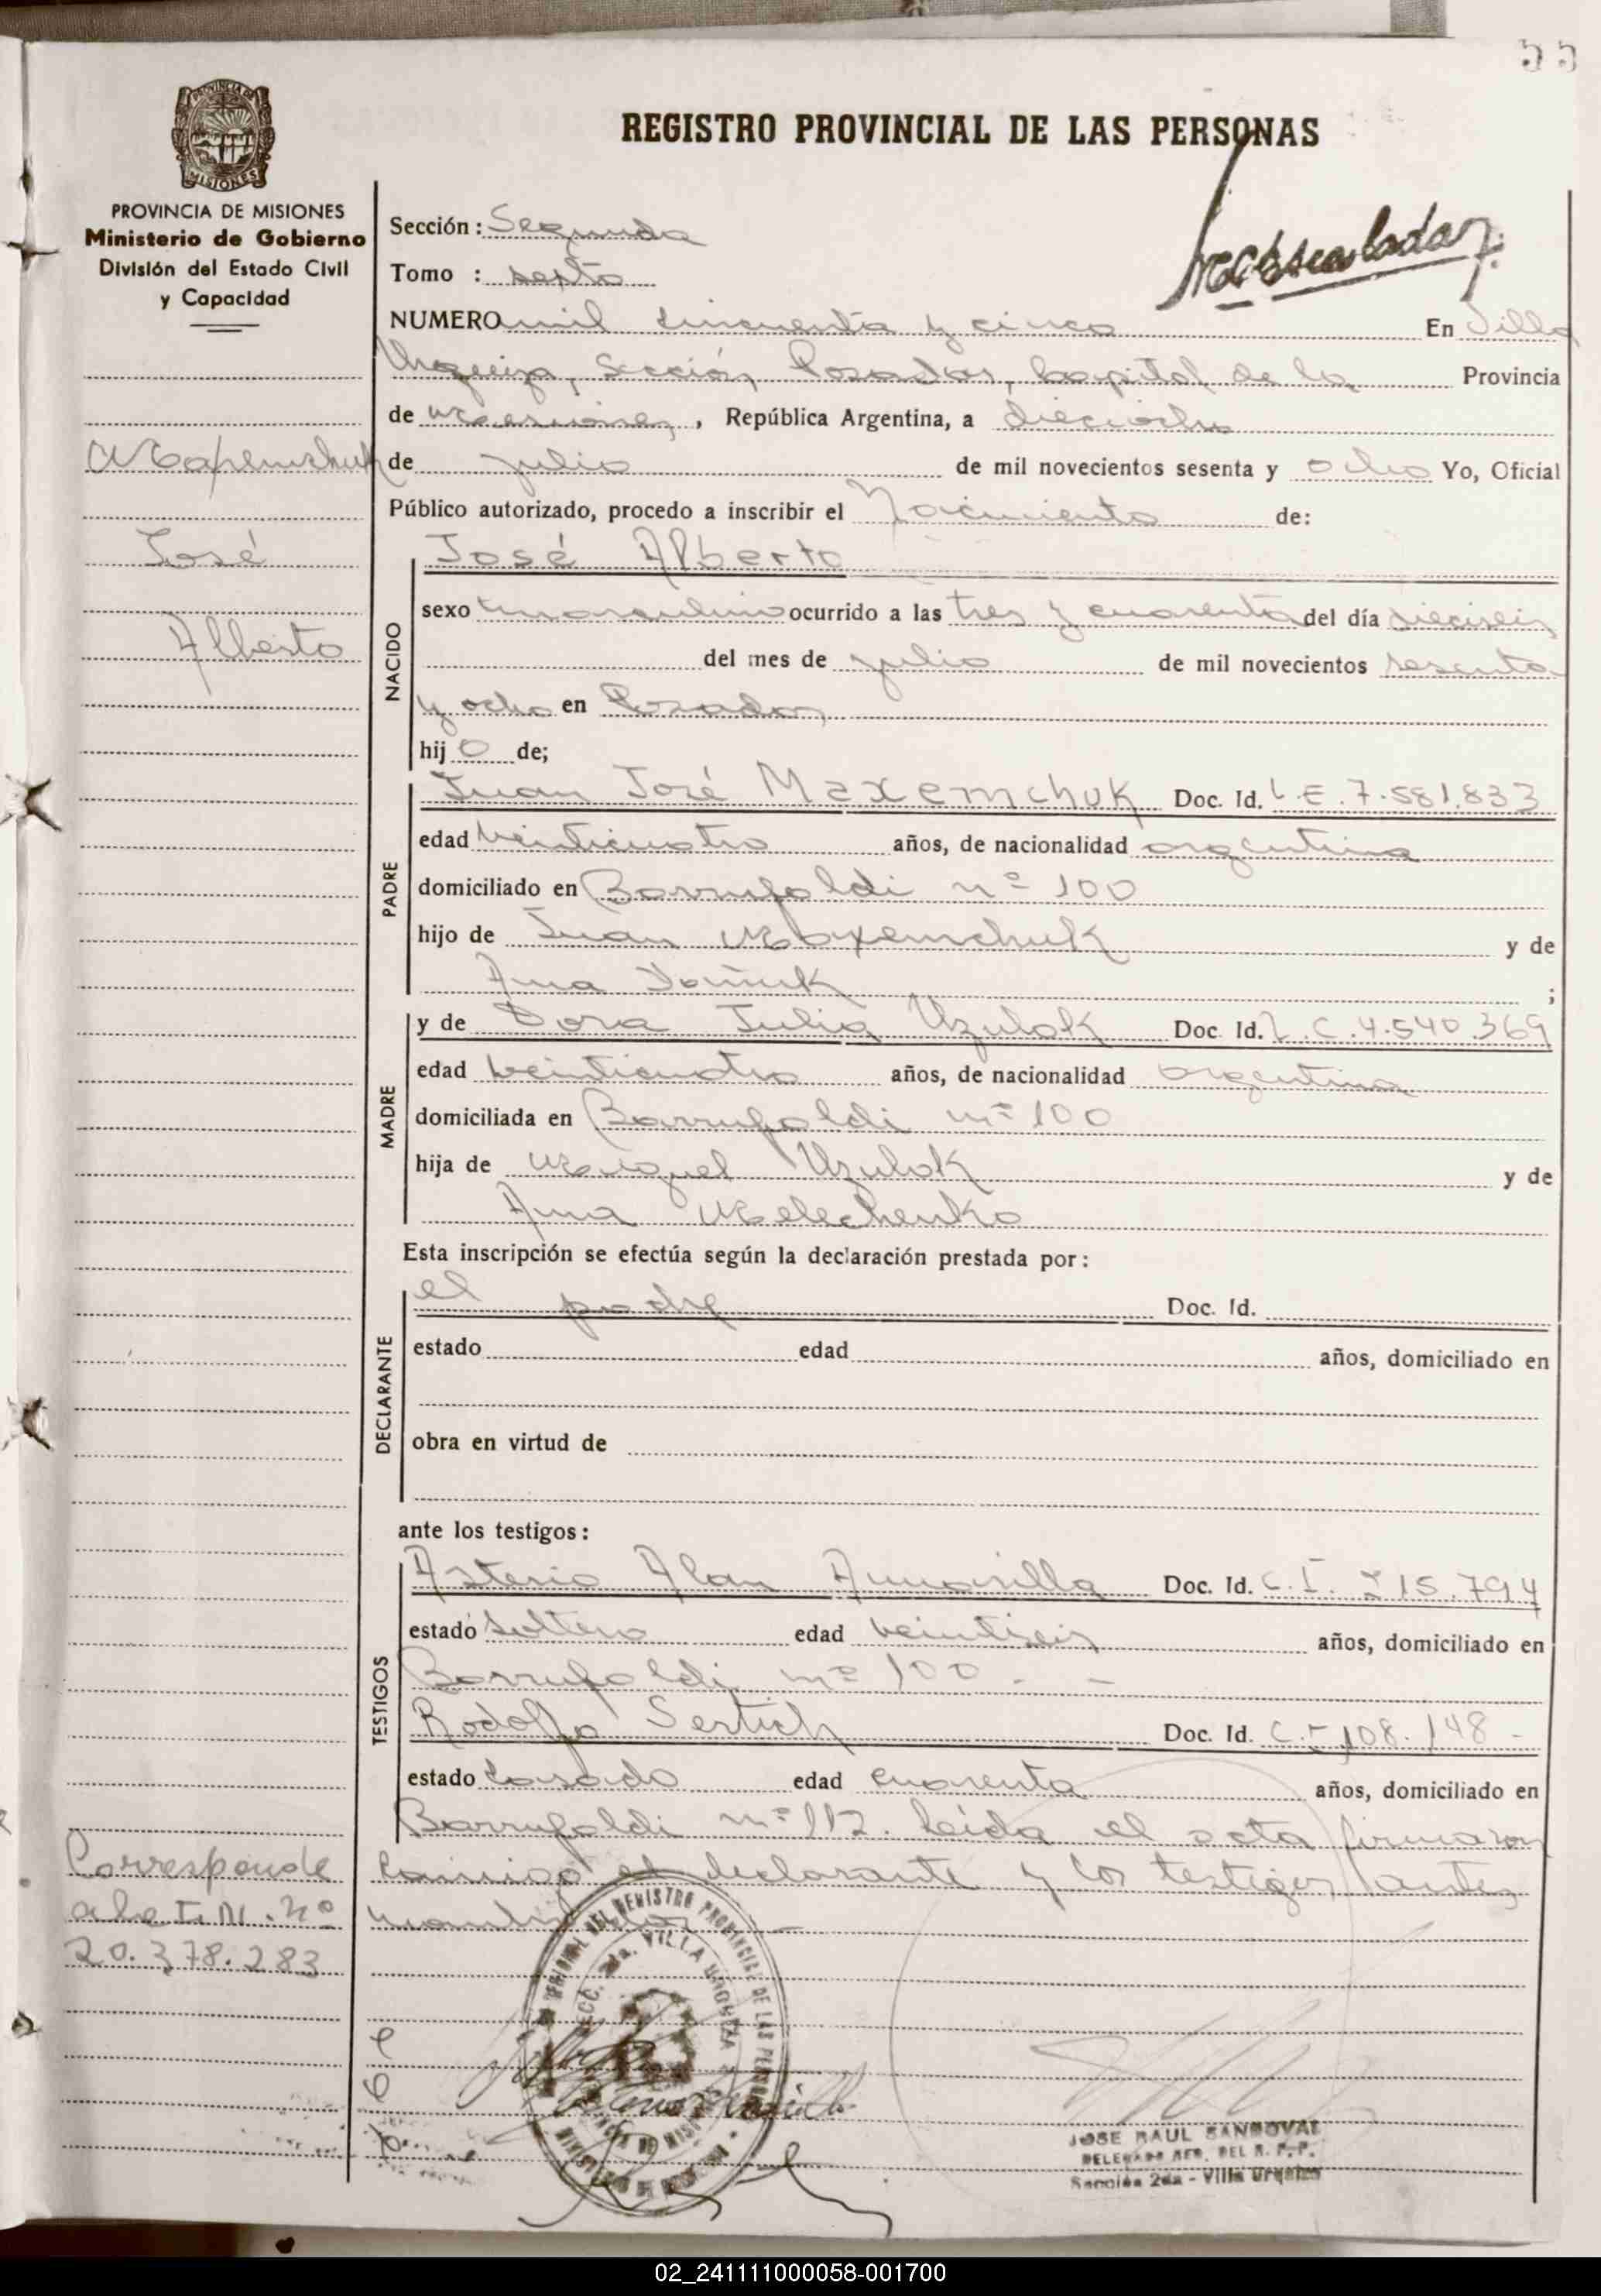 55
PROVINCIA DE
MISIONES
REGISTRO PROVINCIAL DE LAS PERSONAS
PROVINCIA DE MISIONES
Ministerio de Gobierno
División del Estado Civil
y Capacidad
Sección: Segunda
Tomo : sexto
NUMERO mil cincuenta y cinco En Villa
Urquiza, Sección Posadas, Capital de la Provincia
de Misiones, República Argentina, a dieciocho
Maxemchuk
de julio de mil novecientos sesenta y ocho Yo, Oficial
Público autorizado, procedo a inscribir el Nacimiento de:
José
Alberto
NACIDO
José Alberto
sexo masculino ocurrido a las tres y cuarenta del día dieciseis
del mes de julio de mil novecientos sesenta
y ocho en Posadas
hijo de;
PADRE
Juan José Maxemchuk Doc. Id. L.E. 7.581.833
edad veinticuatro años, de nacionalidad argentina
domiciliado en Barrufaldi nº 100
hijo de Juan Maxemchuk y de
Ana ;
MADRE
y de Dora Julia Uzulok Doc. Id. L.C. 4.540.369
edad veinticuatro años, de nacionalidad argentina
domiciliada en Barrufaldi nº 100
hija de Miguel Uzulok y de
Ana Melechenko
Esta inscripción se efectúa según la declaración prestada por:
DECLARANTE
el padre Doc. Id.
estado edad años, domiciliado en
obra en virtud de
ante los testigos:
TESTIGOS
Asterio Alan Amarilla Doc. Id. C.I. 215.794
estado soltero edad veintiseis años, domiciliado en
Barrufaldi nº 100 - -
Rodolfo Sertich Doc. Id. C.I. 108.148 -
estado casado edad cuarenta años, domiciliado en
Barrufaldi nº 112. Leída el acta firmaron
conmigo el declarante y los testigos antes
Corresponde
a la I.M. Nº
20.378.283
JOSE RAUL SANDOVAL
DELEGADO DEL R. P. P.
Sección 2da - Villa Urquiza
02_241111000058-001700